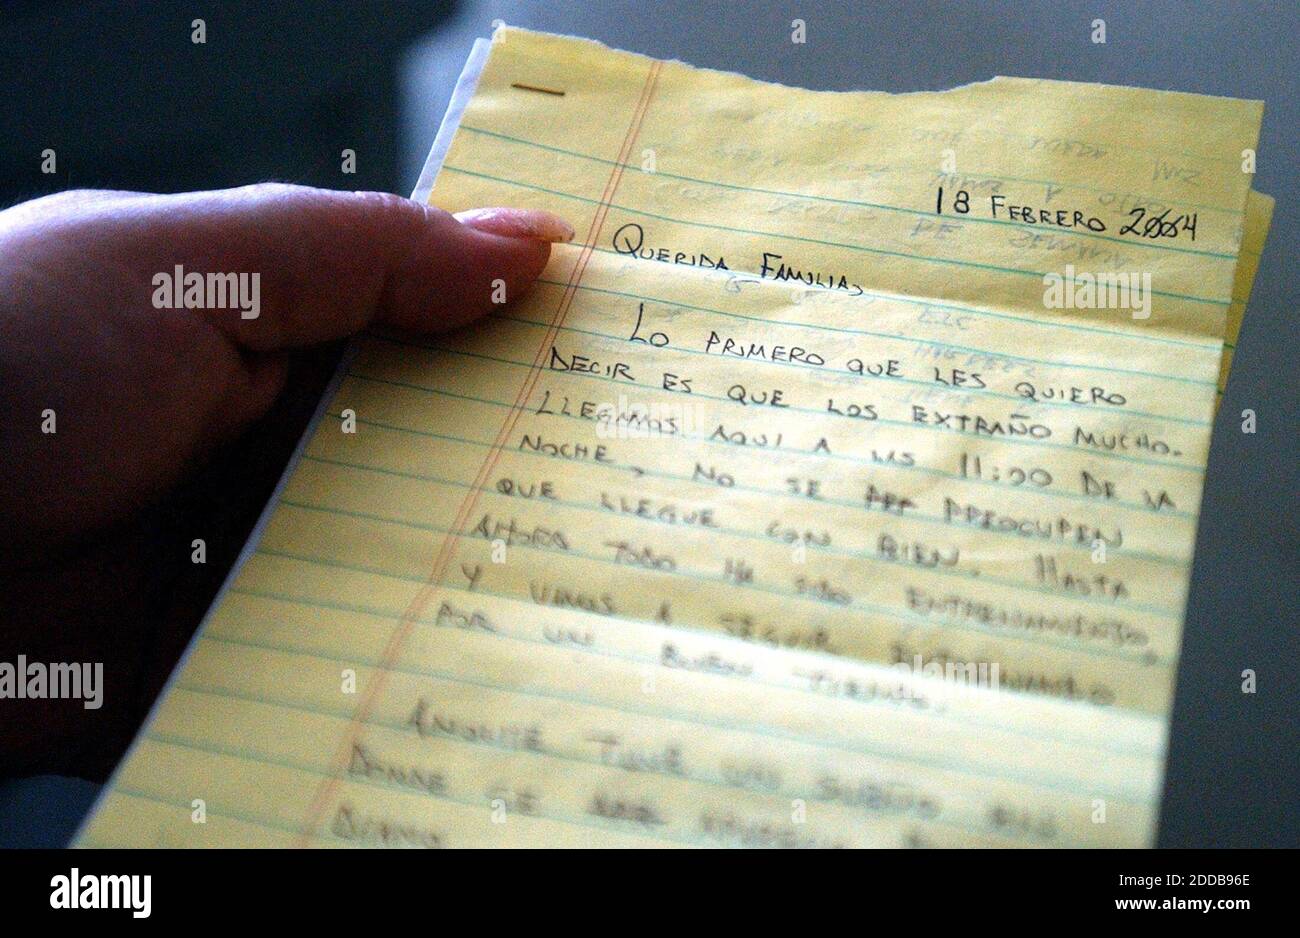 18 FEBRERO 2004
QUERIDA FAMILIA,
LO PRIMERO QUE LES QUIERO
DECIR ES QUE LOS EXTRAÑO MUCHO.
LLEGAMOS AQUI A LAS 11:00 DE LA
NOCHE, NO SE PREOCUPEN
QUE LLEGUE CON BIEN. HASTA
AHORA TODO HA SIDO ENTRENAMIENTO,
Y VAMOS A SEGUIR ENTRENANDO
POR UN BUEN TIEMPO.
ANOCHE TUVE UN SUEÑO
DONDE SE
alamy
Image ID: 2DDB96E
www.alamy.com